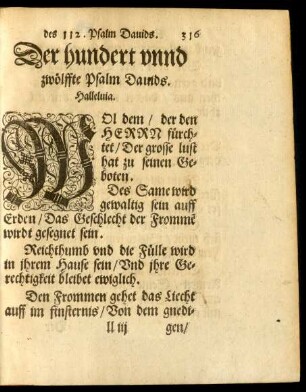 des 112. Psalm Dauids. 316
Der hundert vnnd
zwölffte Psalm Dauids.
Halleluia.
WOl dem / der den
HERRN fürch-
tet / Der grosse lust
hat zu seinen Ge-
boten.
Des Same wird
gewaltig sein auff
Erden / Das Geschlecht der Fromme
wirdt gesegnet sein.
Reichthumb vnd die Fülle wird
in jhrem Hause sein / Vnd jhre Ge-
rechtigkeit bleibet ewiglich.
Den Frommen gehet das Liecht
auff im finsternis / Von dem gnedi-
ll iij gen /